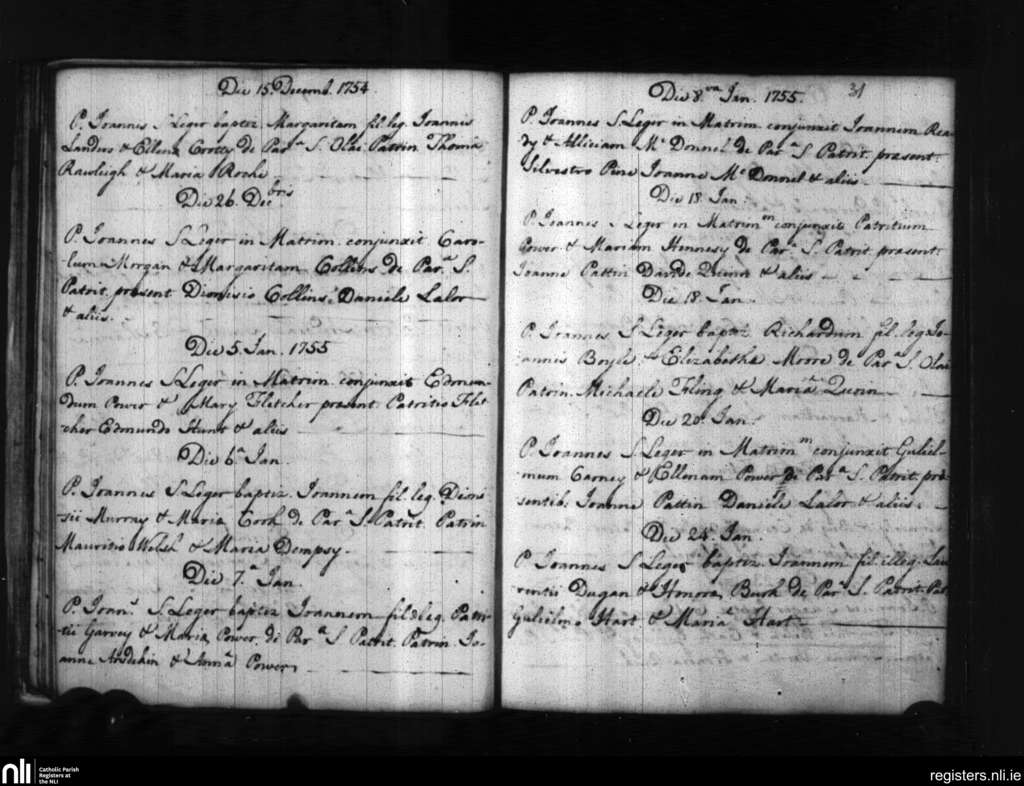 Die 15. Decemb. 1754
P. Joannes S. Leger baptiz. Margaritam fil. leg. Joannis
Landers & Elena Crotty de Par.ᵃ S. Olai Patrin. Thoma
Rawleigh & Maria Roche
Die 26. Decbris
P. Joannes S. Leger in Matrim. conjunxit Caro-
lum Morgan & Margaritam Collins de Par.ᵃ S.
Patrit. present Dionisio Collins, Daniele Lalor
& aliis.
Die 5. Jan. 1755
P. Joannes S. Leger in Matrim. conjunxit Edmun-
dum Power & Mary Fletcher present. Patritio Flet
cher Edmundo Hunt & aliis
Die 6ᵃ Jan.
P. Joannes S. Leger baptiz. Joannem fil. leg. Dioni
sii Murray & Maria Cork de Par.ᵃ S. Patrit. Patrin
Mauritio Welsh & Maria Dempsy.
Die 7.ᵃ Jan.
P. Joan. S. Leger baptiz Joannem fil. leg. Patri-
tii Garvey & Maria Power de Par.ᵃ S. Patrit. Patrin. Jo-
anne & Anna Power
31
Die 8.va Jan. 1755.
P. Joannes S. Leger in Matrim conjunxit Joannem Rea-
dy & Alliciam Mc Donnel de Par.ᵃ S. Patrit. present:
Silvestro Pine Joanne Mc Donnel & aliis
Die 18. Jan
P. Joannes S Leger in Matrim.m conjunxit Patritium
Power & Mariam Hennesy de Par.ᵃ S. Patrit present:
Joanne Pattin Davide Quinn & aliis
Die 18. Jan.
P. Joannes S Leger baptiz. Richardum fil. leg. Jo-
annis Boyle & Elizabetha Moore de Par.ᵃ S. Olai
Patrin. Michaele Fling & Maria Quinn
Die 20. Jan.
P. Joannes S. Leger in Matrim.m conjunxit Guliel-
mum Carney & Ellenam Power de Par.ᵃ S. Patrit. pre
sentib: Joanne Pattin Daniele Lalor & aliis.
Die 24. Jan.
P. Joannes S Leger baptiz Joannem fil. illeg. Lau
rentii Dugan & Honora Burk de Par.ᵃ S. Patrit. Pat.
Gulielmo Hart & Maria Hart
nli Catholic Parish
Registers at
the NLI
registers.nli.ie